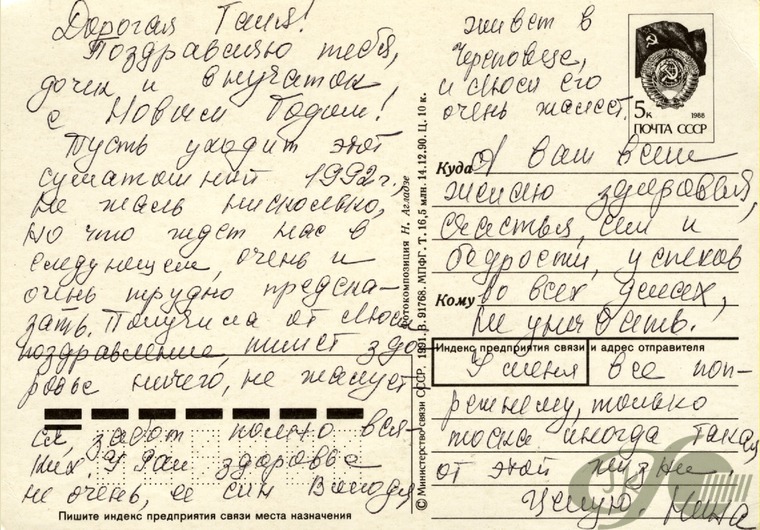 Дорогая Таня!
Поздравляю тебя,
дочек и внучаток
с Новым Годом!
Пусть уходит этот
суматошный 1992 г,
не жаль нисколько,
но что ждет нас в
следующем, очень и
очень трудно предска-
зать. Получила от Люси
поздравление, пишет здо
ровье ничего, не жалует
ся, забот полно вся-
ких. У Раи здоровье
не очень, ее сын Володя
Пишите индекс предприятия связи места назначения
© Министерство связи СССР, 1991. В. 91768. МПФГ. Т. 16,5 млн. 14.12.90. Ц. 10 к.
Фотокомпозиция Н. Агладзе
живет в
Череповце,
и Люся его
очень жалеет.
5к
1988
ПОЧТА СССР
Куда
А вам всем
желаю здоровья,
счастья, сил и
бодрости, успехов
Кому
во всех делах,
не унывать.
Индекс предприятия связи и адрес отправителя
У меня все поп-
режнему, только
тоска иногда такая
от этой жизни.
Целую. Нина